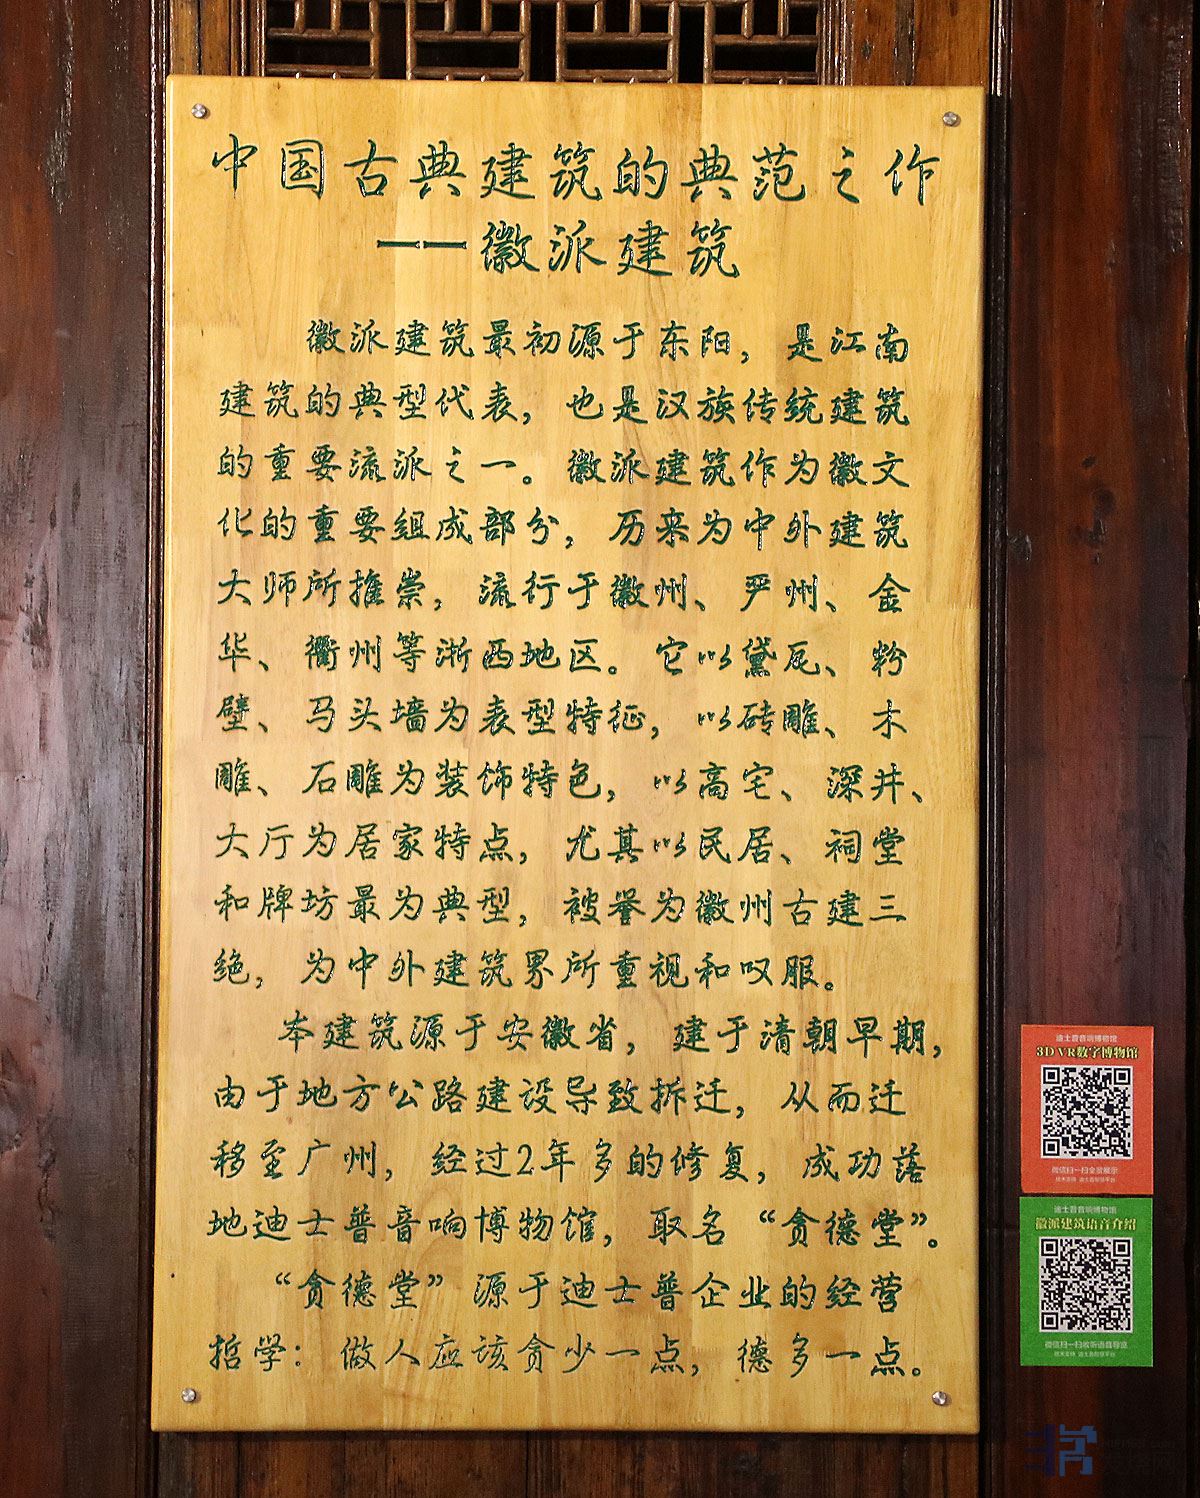 中国古典建筑的典范之作
——徽派建筑
徽派建筑最初源于东阳，是江南
建筑的典型代表，也是汉族传统建筑
的重要流派之一。徽派建筑作为徽文
化的重要组成部分，历来为中外建筑
大师所推崇，流行于徽州、严州、金
华、衢州等浙西地区。它以黛瓦、粉
壁、马头墙为表型特征，以砖雕、木
雕、石雕为装饰特色，以高宅、深井、
大厅为居家特点，尤其以民居、祠堂
和牌坊最为典型，被誉为徽州古建三
绝，为中外建筑界所重视和叹服。
本建筑源于安徽省，建于清朝早期，
由于地方公路建设导致拆迁，从而迁
移至广州，经过2年多的修复，成功落
地迪士普音响博物馆，取名“贪德堂”。
“贪德堂”源于迪士普企业的经营
哲学：做人应该贪少一点，德多一点。
迪士普音响博物馆
3D VR数字博物馆
微信扫一扫全景展示
技术支持 迪士普智慧平台
迪士普音响博物馆
徽派建筑语音介绍
微信扫一扫收听语音导览
技术支持 迪士普智慧平台